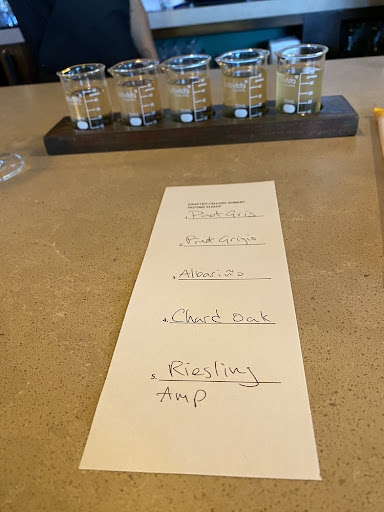 CRAFTED CELLARS WINERY
TASTING FLIGHT
1. Pinot Gris
2. Pinot Grigio
3. Albariño
4. Chard Oak
5. Riesling
Amp